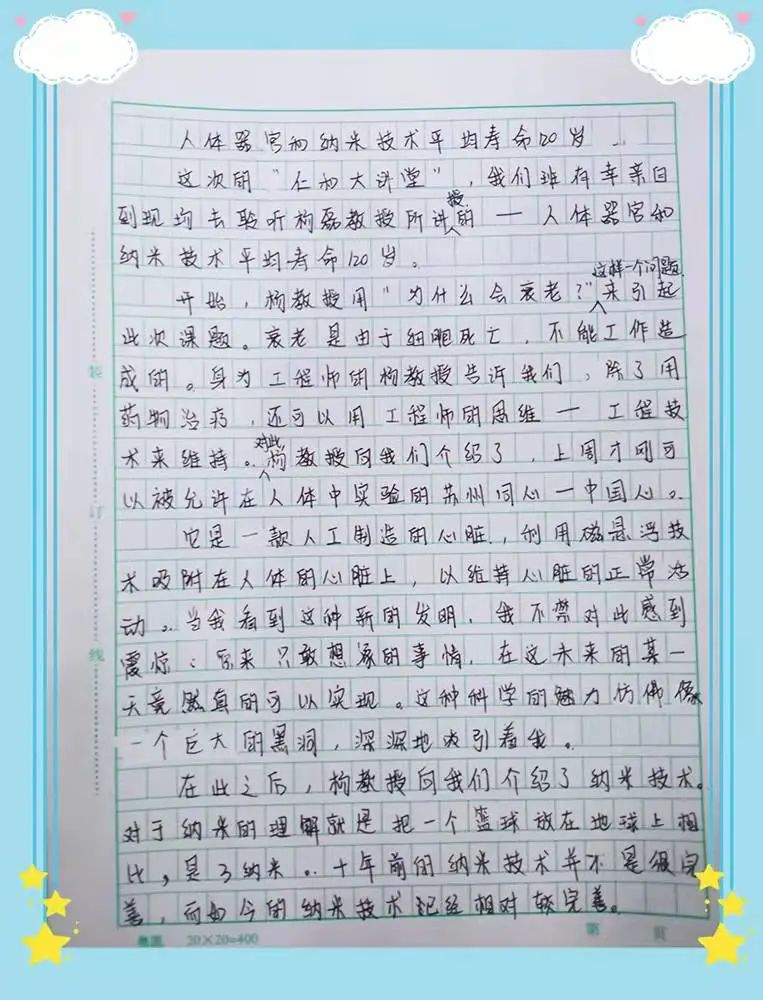 人体器官和纳米技术平均寿命120岁
这次的“仁和大讲堂”，我们班有幸亲自
到现场去聆听杨磊教授所讲授的 — 人体器官和
纳米技术平均寿命120岁。
开始，杨教授用“为什么会衰老？”这样一个问题来引起
此次课题。衰老是由于细胞死亡，不能工作造
成的。身为工程师的杨教授告诉我们，除了用
药物治疗，还可以用工程师的思维 — 工程技
术来维持。对此，杨教授向我们介绍了，上周才刚可
以被允许在人体中实验的苏州同心—中国心。
它是一款人工制造的心脏，利用磁悬浮技
术吸附在人体的心脏上，以维持心脏的正常活
动。当我看到这种新的发明，我不禁对此感到
震惊：原来只敢想象的事情，在这未来的某一
天竟然真的可以实现。这种科学的魅力仿佛像
一个巨大的黑洞，深深地吸引着我。
在此之后，杨教授向我们介绍了纳米技术。
对于纳米的理解就是把一个篮球放在地球上相
比，是3纳米。十年前的纳米技术并不是很完
善，而如今的纳米技术已经相对较完善。
装
订
线
20×20=400
第 页